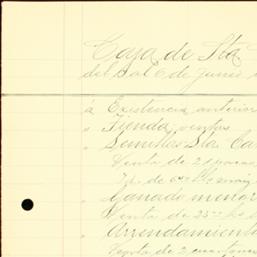 Caja de Sta
del 3 al 6 de Junio
á Existencia anterior
" Tienda, ventas
" Semillas Sta. Ca
Venta de 2
de maiz
" Ganado menor
Venta de 25
" Arrendamiento
Venta de 2